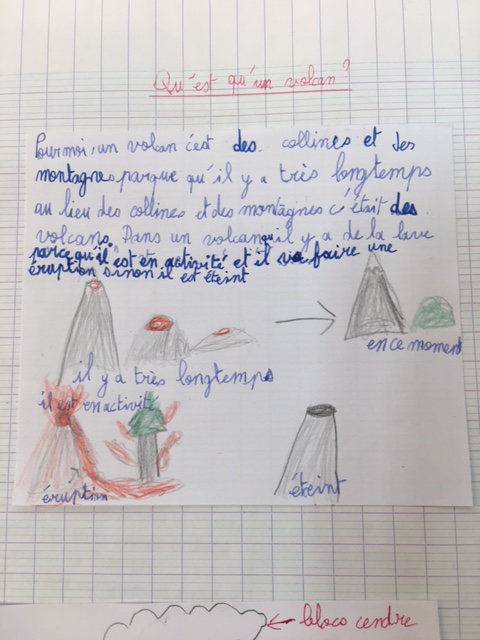 Qu'est qu'un volcan ?
Pour moi, un volcan c'est des collines et des
montagnes parque qu'il y a très longtemps
au lieu des collines et des montagnes c'était des
volcans. Dans un volcan qu'il y a de la lave
parce qu'il est en activité et il va faire une
éruption sinon il est éteint
en ce moment
il y a très longtemps
il est en activité
éruption
éteint
cendre